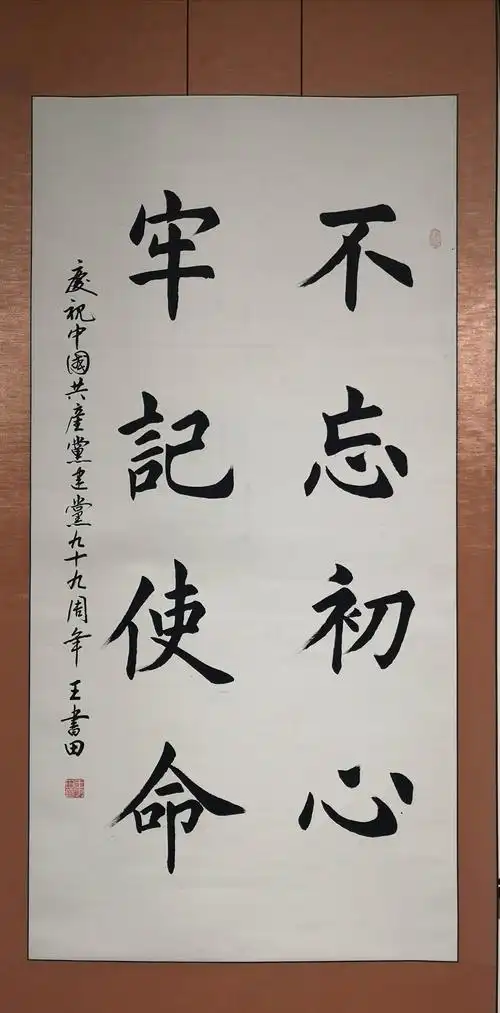 不忘初心
牢記使命
慶祝中國共產黨建黨九十九周年 王書田